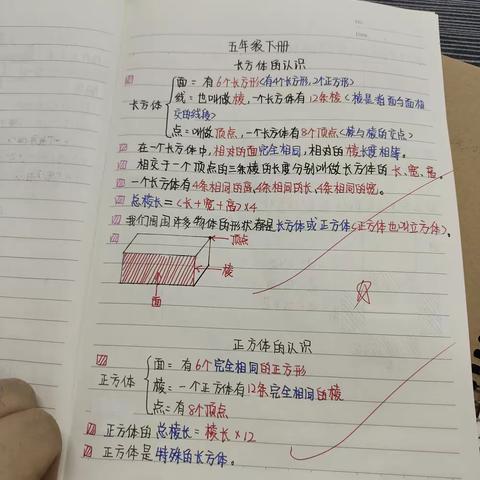 五年级下册
长方体的认识
长方体
面=有6个长方形(有4个长方形,2个正方形)
线=也叫做棱,一个长方体有12条棱(棱是指面与面相
交的线段)
点=叫做顶点,一个长方体有8个顶点(棱与棱的交点)
在一个长方体中,相对的面完全相同,相对的棱长度相等。
相交于一个顶点的三条棱的长度分别叫做长方体的长、宽、高。
一个长方体有4条相同的高,4条相同的长,4条相同的宽。
总棱长=(长+宽+高)×4
我们周围许多物体的形状都是长方体或正方体(正方体也叫立方体)。
顶点
棱
面
正方体的认识
正方体
面=有6个完全相同的正方形
棱=一个正方体有12条完全相同的棱
点=有8个顶点
正方体的总棱长=棱长×12
正方体是特殊的长方体。